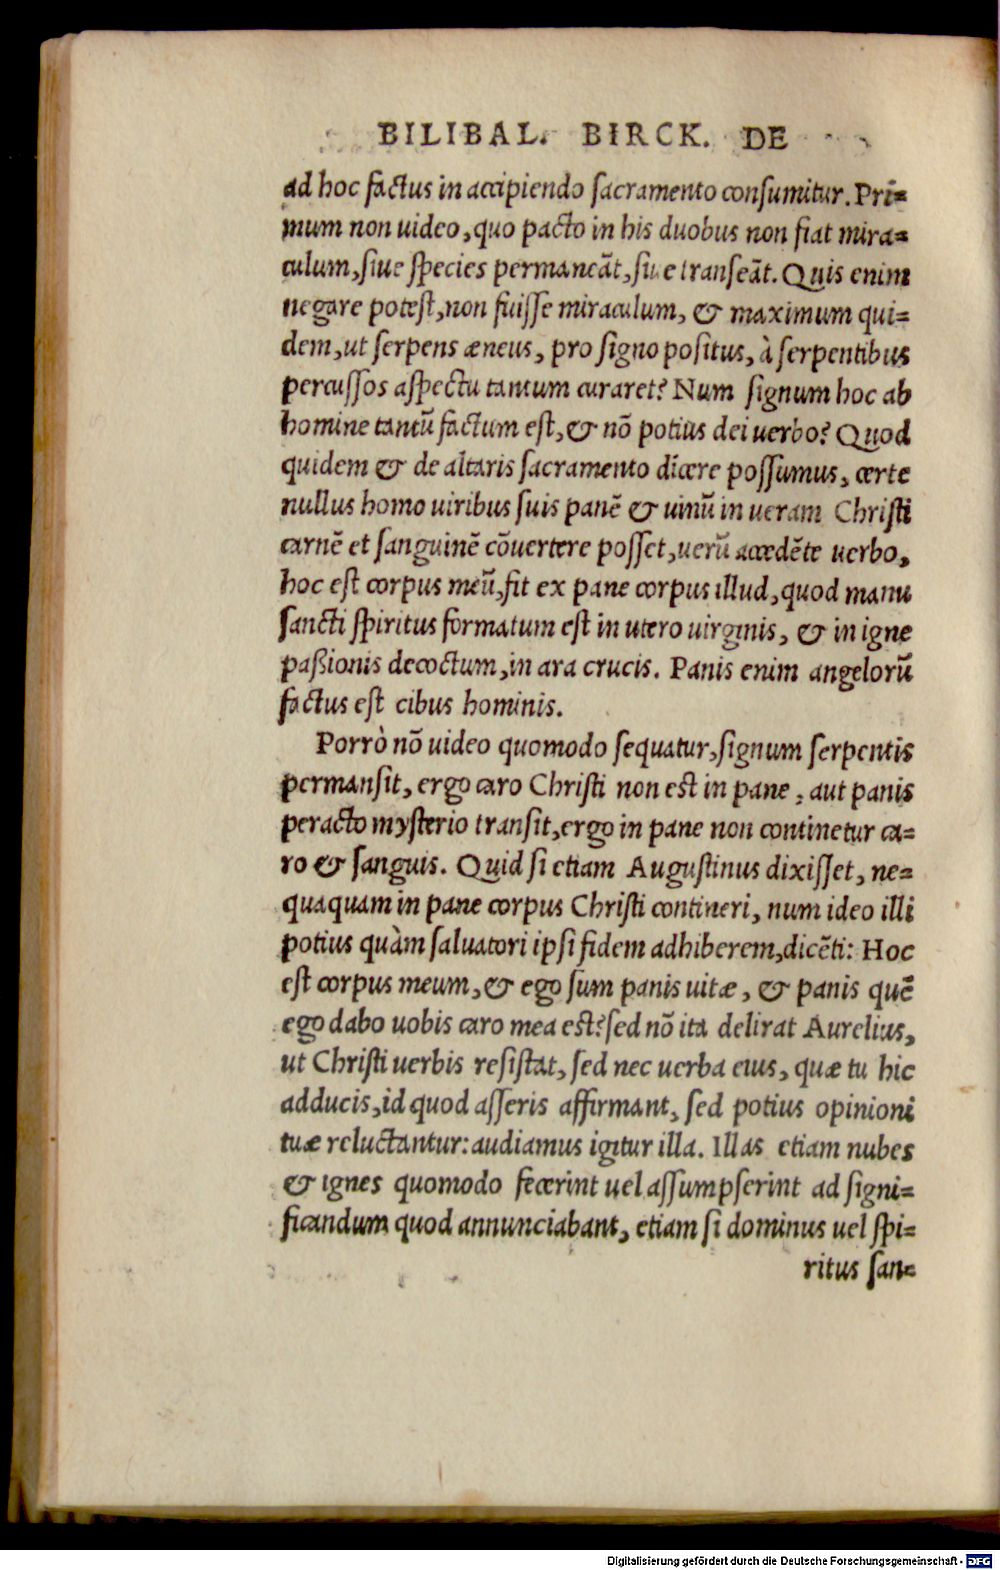 BILIBAL. BIRCK. DE
ad hoc factus in accipiendo sacramento consumitur. Pri=
mum non uideo, quo pacto in his duobus non fiat mira=
culum, siue species permaneāt, siue transeāt. Quis enim
negare potest, non fuisse miraculum, & maximum qui=
dem, ut serpens æneus, pro signo positus, à serpentibus
percussos aspectu tantum curaret? Num signum hoc ab
homine tantū factum est, & nō potius dei uerbo? Quod
quidem & de altaris sacramento dicere possumus, certe
nullus homo uiribus suis panē & uinū in ueram Christi
carnē et sanguinē cōuertere posset, uerū accedēte uerbo,
hoc est corpus meū, fit ex pane corpus illud, quod manu
sancti spiritus formatum est in utero uirginis, & in igne
paßionis decoctum, in ara crucis. Panis enim angelorū
factus est cibus hominis.
Porrò nō uideo quomodo sequatur, signum serpentis
permansit, ergo caro Christi non est in pane: aut panis
peracto mysterio transit, ergo in pane non continetur ca=
ro & sanguis. Quid si etiam Augustinus dixisset, ne=
quaquam in pane corpus Christi contineri, num ideo illi
potius quàm saluatori ipsi fidem adhiberem, dicēti: Hoc
est corpus meum, & ego sum panis uitæ, & panis quē
ego dabo uobis caro mea est? sed nō ita delirat Aurelius,
ut Christi uerbis resistat, sed nec uerba eius, quæ tu hic
adducis, id quod asseris affirmant, sed potius opinioni
tuæ reluctantur: audiamus igitur illa. Illas etiam nubes
& ignes quomodo fecerint uel assumpserint ad signi=
ficandum quod annunciabant, etiam si dominus uel spi=
ritus san=
Digitalisierung gefördert durch die Deutsche Forschungsgemeinschaft - DFG